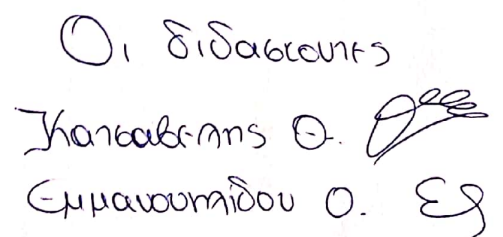 Οι διδάσκοντες
Κατσαβέλης Θ.
Εμμανουηλίδου Ο.